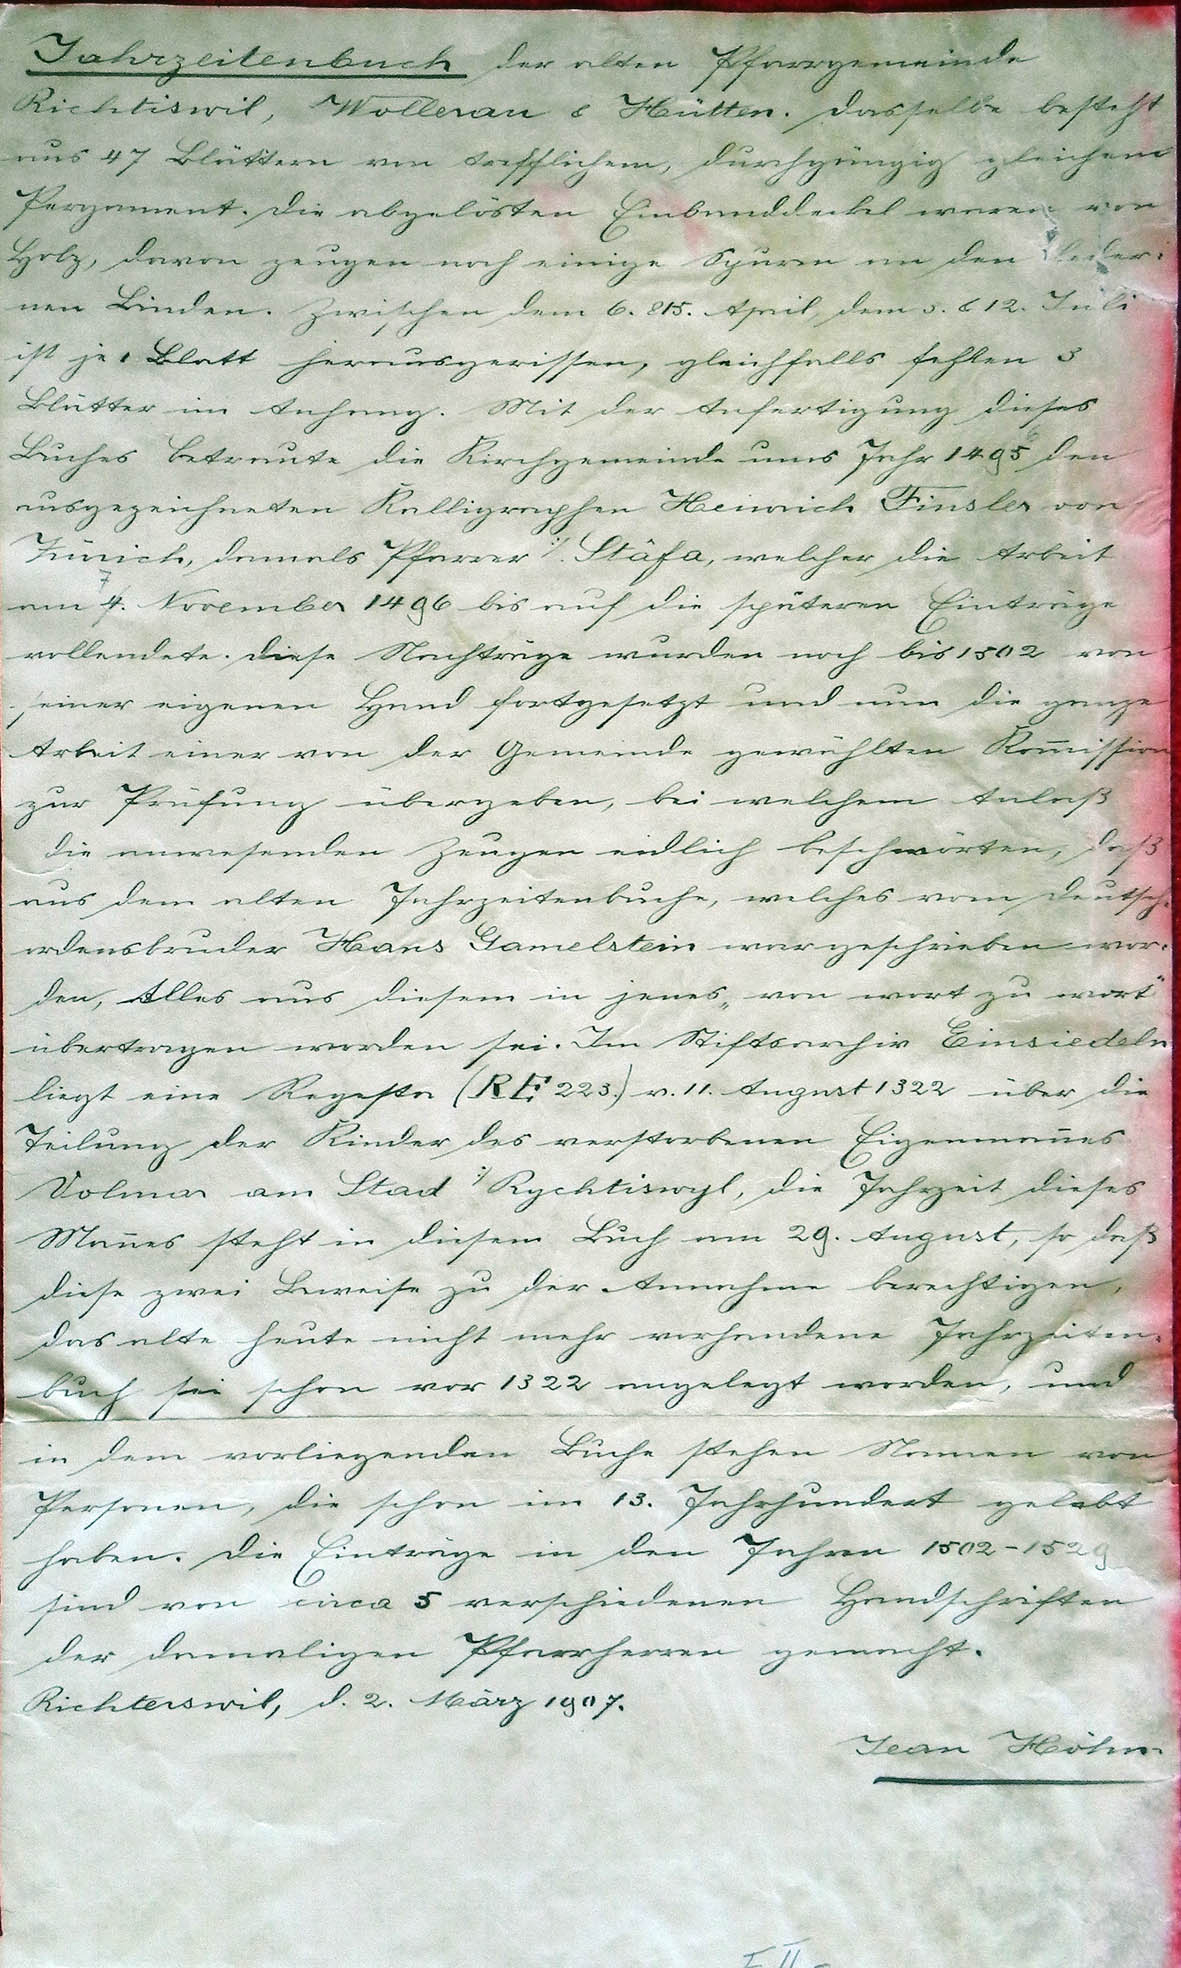 Jahrzeitenbuch der alten Pfarrgemeinde
Richtiswil, Wollerau & Hütten. Dasselbe besteht
aus 47 Blättern von trefflichem, durchgängig gleichem
Pergament. Die abgelösten Einbanddeckel waren von
Holz, davon zeugen noch einige Spuren an den leder-
nen Binden. Zwischen dem 6. & 15. April, dem 5. & 12. Juli
ist je 1 Blatt herausgerissen, gleichfalls fehlen 3
Blätter im Anhang. Mit der Anfertigung dieses
Buches betraute die Kirchgemeinde ums Jahr 1495 den
ausgezeichneten Kalligraphen Heinrich Finsler von
Zürich, damals Pfarrer i/. Stäfa, welcher die Arbeit
am 7. November 1496 bis auf die späteren Einträge
vollendete. Diese Nachträge wurden noch bis 1502 von
seiner eigenen Hand fortgesetzt und nun die ganze
Arbeit einer von der Gemeinde gewählten Kom̅ission
zur Prüfung übergeben, bei welchem Anlaß
die anwesenden Zeugen eidlich beschwörten, daß
aus dem alten Jahrzeitenbuche, welches vom Deutsch-
ordensbruder Hans Gamelstein war geschrieben wor-
den, Alles aus diesem in jenes „von wort zu wort“
übertragen worden sei. Im Stiftsarchiv Einsiedeln
liegt eine Regesta (R E 223.) v. 11. August 1322 über die
Teilung der Kinder des verstorbenen Eigenman̅es
Volmar am Stad i/ Rychtiswyl, die Jahrzeit dieses
Man̅es steht in diesem Buch am 29. August, so daß
diese zwei Beweise zu der Annahme berechtigen,
das alte heute nicht mehr vorhandene Jahrzeiten-
buch sei schon vor 1322 angelegt worden, und
in dem vorliegenden Buche stehen Namen von
Personen, die schon im 13. Jahrhundert gelebt
haben. Die Einträge in den Jahren 1502-1529
sind von circa 5 verschiedenen Handschriften
der damaligen Pfarrherren gemacht.
Richterswil, d. 2. März 1907.
Jean Höhn